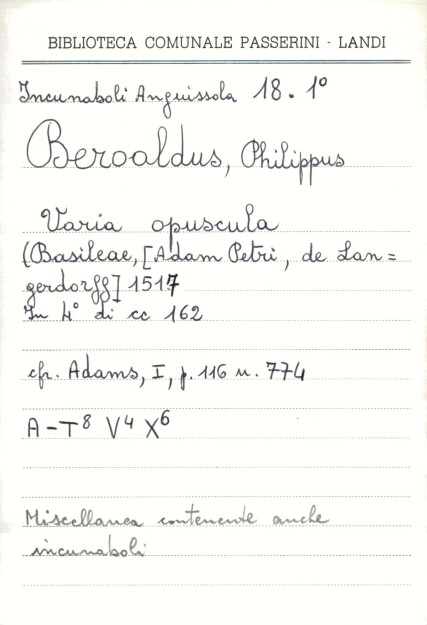 BIBLIOTECA COMUNALE PASSERINI - LANDI
Incunaboli Anguissola 18. 1º
Beroaldus, Philippus
Varia opuscula
(Basileae, [Adam Petri, de Lan=
gerdorff] 1517
In 4º di cc 162
cfr. Adams, I, p. 116 n. 774
A-T⁸ V⁴ X⁶
Miscellanea contenente anche
incunaboli